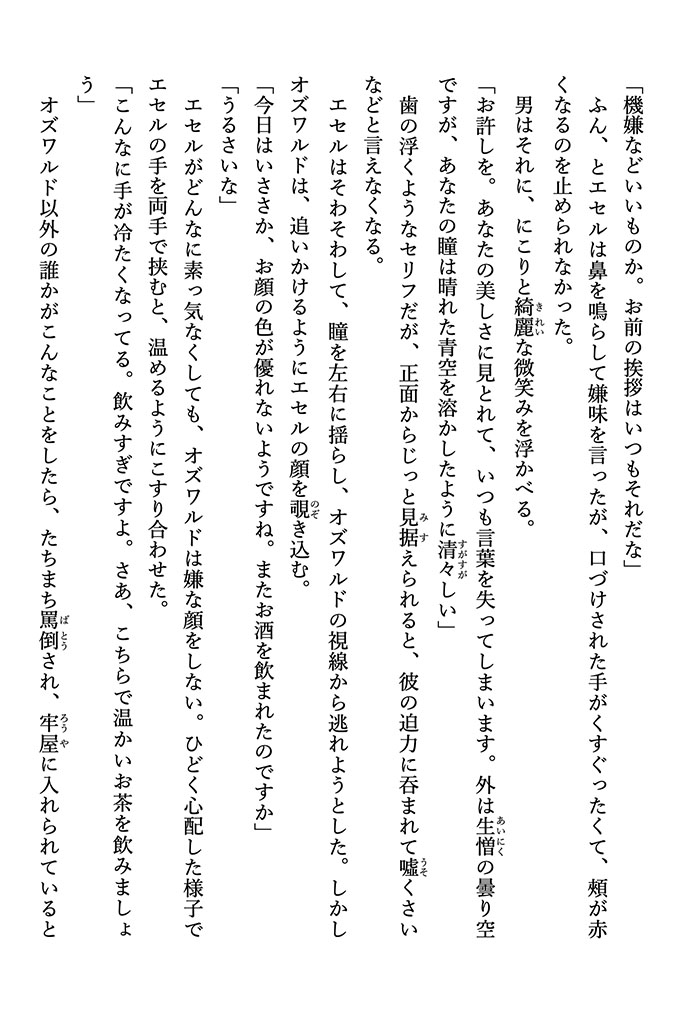 「機嫌などいいものか。お前の挨拶はいつもそれだな」
ふん、とエセルは鼻を鳴らして嫌味を言ったが、口づけされた手がくすぐったくて、頰が赤
くなるのを止められなかった。
男はそれに、にこりと綺麗な微笑みを浮かべる。
「お許しを。あなたの美しさに見とれて、いつも言葉を失ってしまいます。外は生憎の曇り空
ですが、あなたの瞳は晴れた青空を溶かしたように清々しい」
歯の浮くようなセリフだが、正面からじっと見据えられると、彼の迫力に吞まれて噓くさい
などと言えなくなる。
エセルはそわそわして、瞳を左右に揺らし、オズワルドの視線から逃れようとした。しかし
オズワルドは、追いかけるようにエセルの顔を覗き込む。
「今日はいささか、お顔の色が優れないようですね。またお酒を飲まれたのですか」
「うるさいな」
エセルがどんなに素っ気なくしても、オズワルドは嫌な顔をしない。ひどく心配した様子で
エセルの手を両手で挟むと、温めるようにこすり合わせた。
「こんなに手が冷たくなってる。飲みすぎですよ。さあ、こちらで温かいお茶を飲みましょ
う」
オズワルド以外の誰かがこんなことをしたら、たちまち罵倒され、牢屋に入れられていると